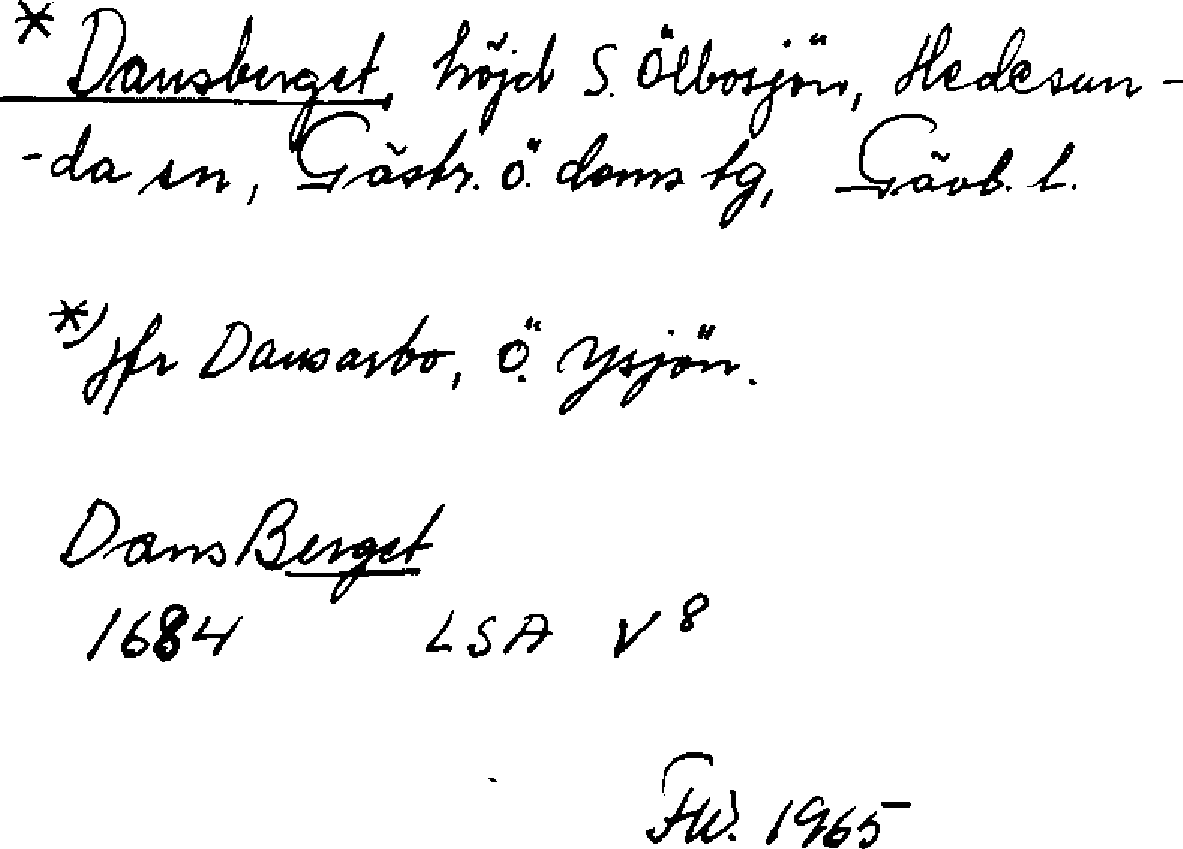 * Dansberget, höjd S. Ölbosjön, Hedesun-
-da sn, Gästr. ö. doms tg, Gävb. l.
*) jfr Dansarbo, Ö. Ysjön.
Dans Berget
1684 LSA V 8
FW. 1965